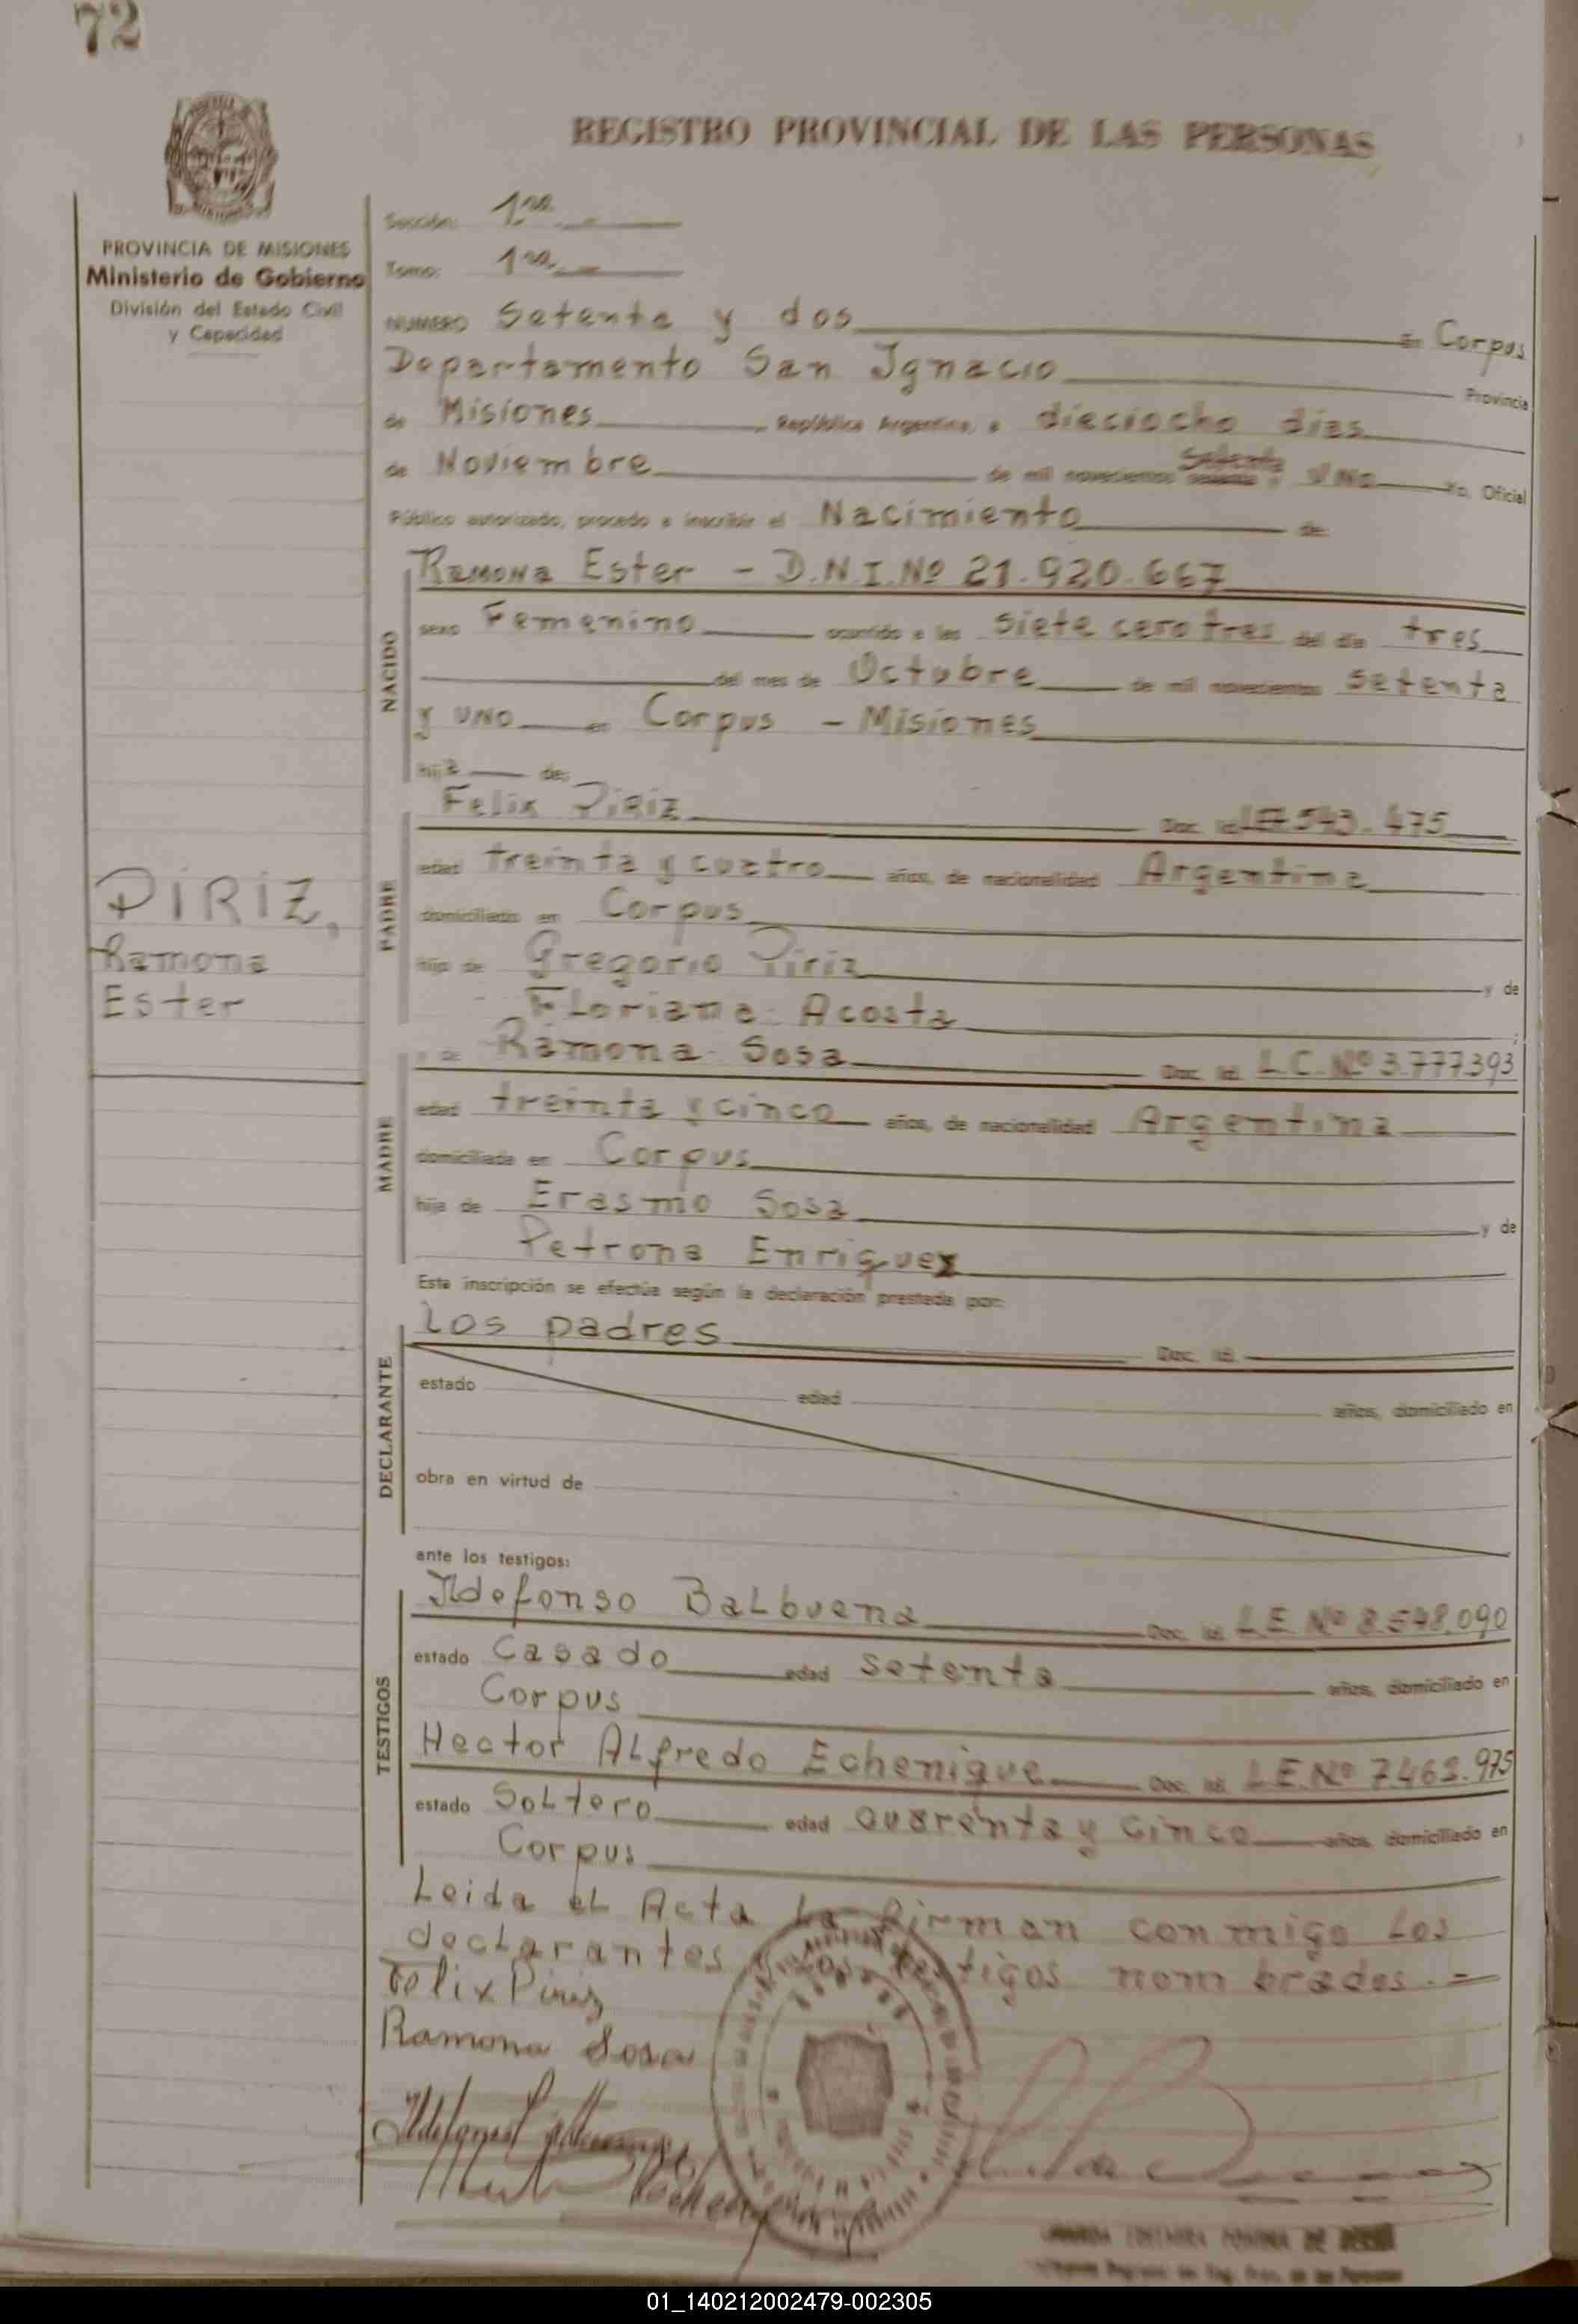 72
REGISTRO PROVINCIAL DE LAS PERSONAS
PROVINCIA DE MISIONES
Ministerio de Gobierno
División del Estado Civil
y Capacidad
Sección: 1ra
Tomo: 1ro
NUMERO Setenta y dos En Corpus
Departamento San Ignacio Provincia
de Misiones República Argentina, a dieciocho días
de Noviembre de mil novecientos setenta y uno Yo, Oficial
Público autorizado, procedo a inscribir el Nacimiento de
NACIDO
Ramona Ester - D.N.I. Nº 21.920.667
sexo Femenino ocurrido a las siete cero tres del día tres
del mes de Octubre de mil novecientos setenta
y uno en Corpus - Misiones
hija de:
PADRE
Felix PiRiZ Doc. Id. 543.475
edad treinta y cuatro años, de nacionalidad Argentina
domiciliado en Corpus
hijo de Gregorio Piriz y de
Floriana Acosta
PIRIZ,
Ramona
Ester
MADRE
y de Ramona Sosa Doc. Id. L.C. Nº 3.777.393
edad treinta y cinco años, de nacionalidad Argentina
domiciliada en Corpus
hija de Erasmo Sosa y de
Petrona Enriquez
Esta inscripción se efectúa según la declaración prestada por:
DECLARANTE
Los padres Doc. Id.
estado edad años, domiciliado en
obra en virtud de
ante los testigos:
TESTIGOS
Ildefonso Balbuena Doc. Id. L.E. Nº 8.548.090
estado Casado edad setenta años, domiciliado en
Corpus
Hector Alfredo Echenique Doc. Id. L.E. Nº
estado Soltero edad cuarenta y cinco años, domiciliado en
Corpus
Leida el Acta La firman conmigo Los
declarantes y los testigos nombrados.=
Felix Piriz
Ramona Sosa
01_140212002479-002305